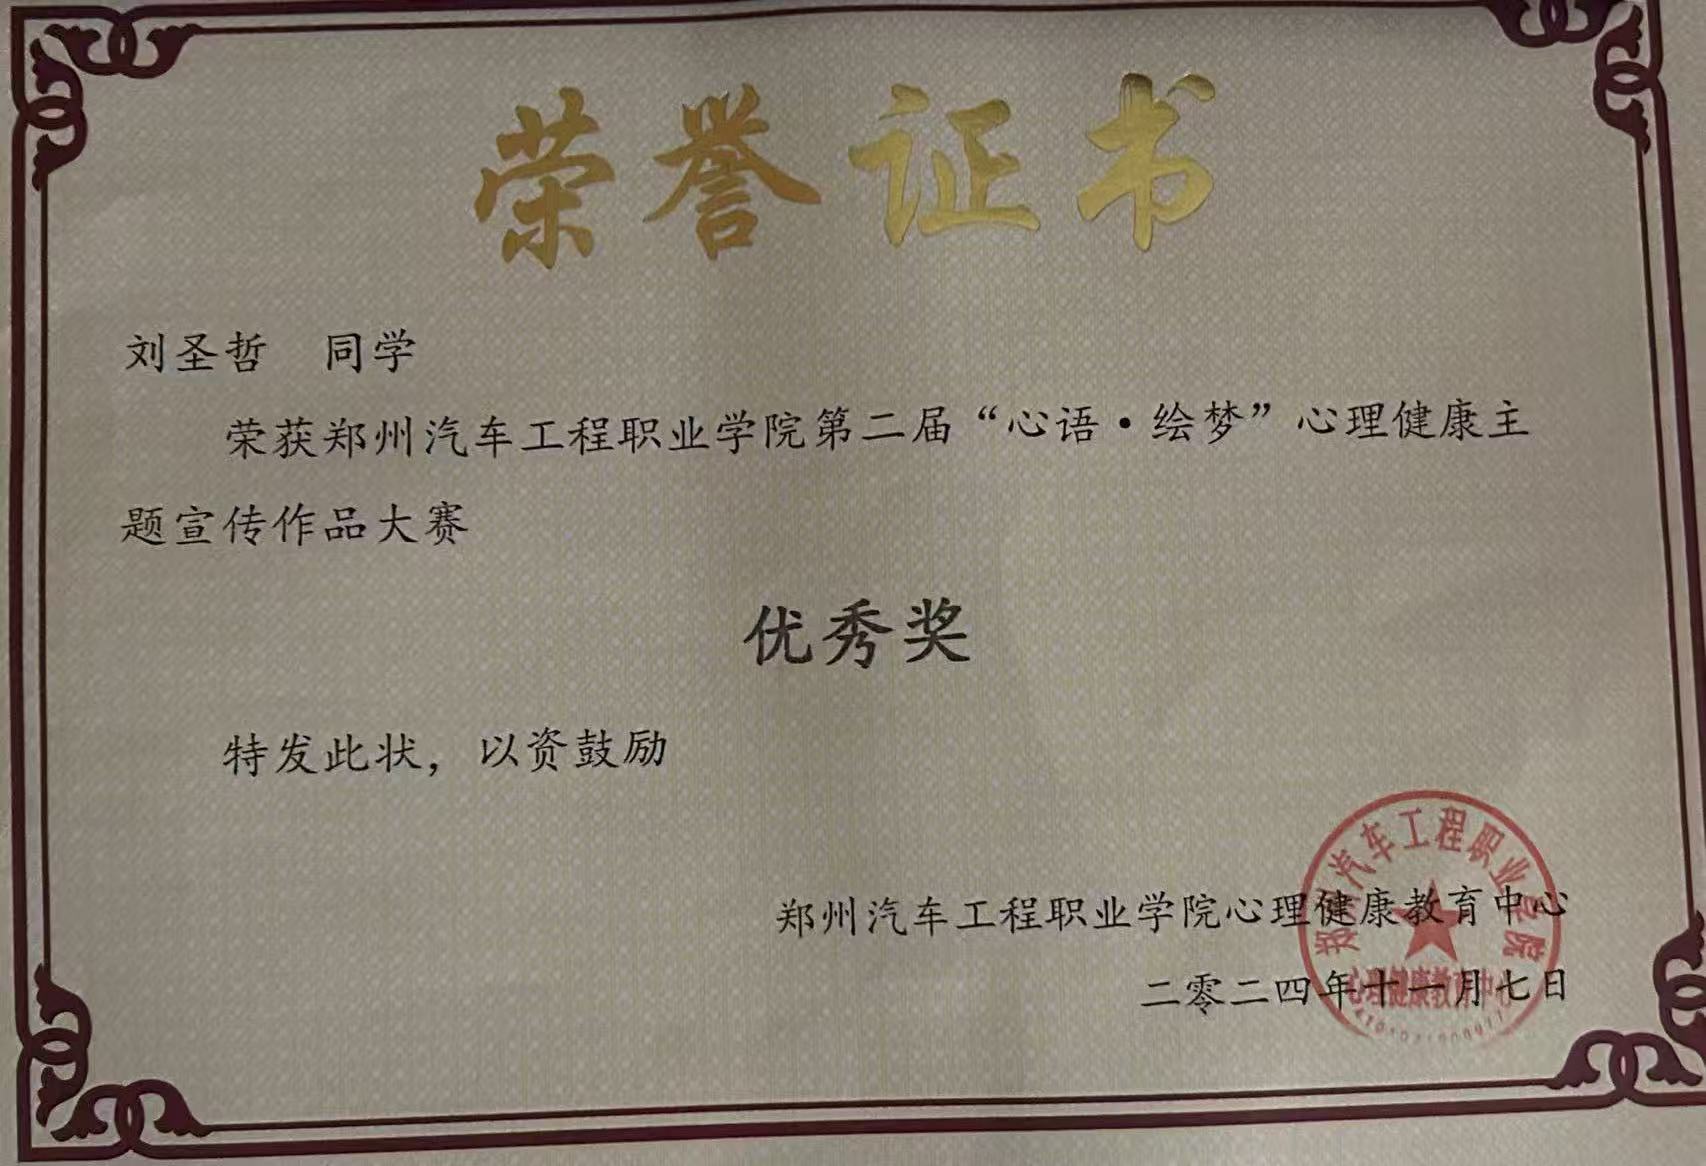 荣誉证书
刘圣哲 同学
荣获郑州汽车工程职业学院第二届“心语·绘梦”心理健康主
题宣传作品大赛
优秀奖
特发此状，以资鼓励
郑州汽车工程职业学院心理健康教育中心
二零二四年十一月七日
郑州汽车工程职业学院
心理健康教育中心